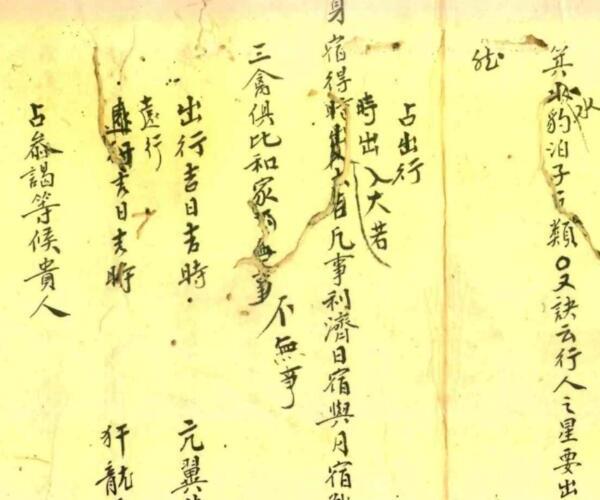 箕水豹泊子類〇又訣云行人之星要出
水
占出行
時出入大若
身宿得時凡事利濟日宿與月宿
三禽俱比和家事
不無事
出行吉日吉時 亢翼
遠行
行吉日吉時
占參謁等候貴人